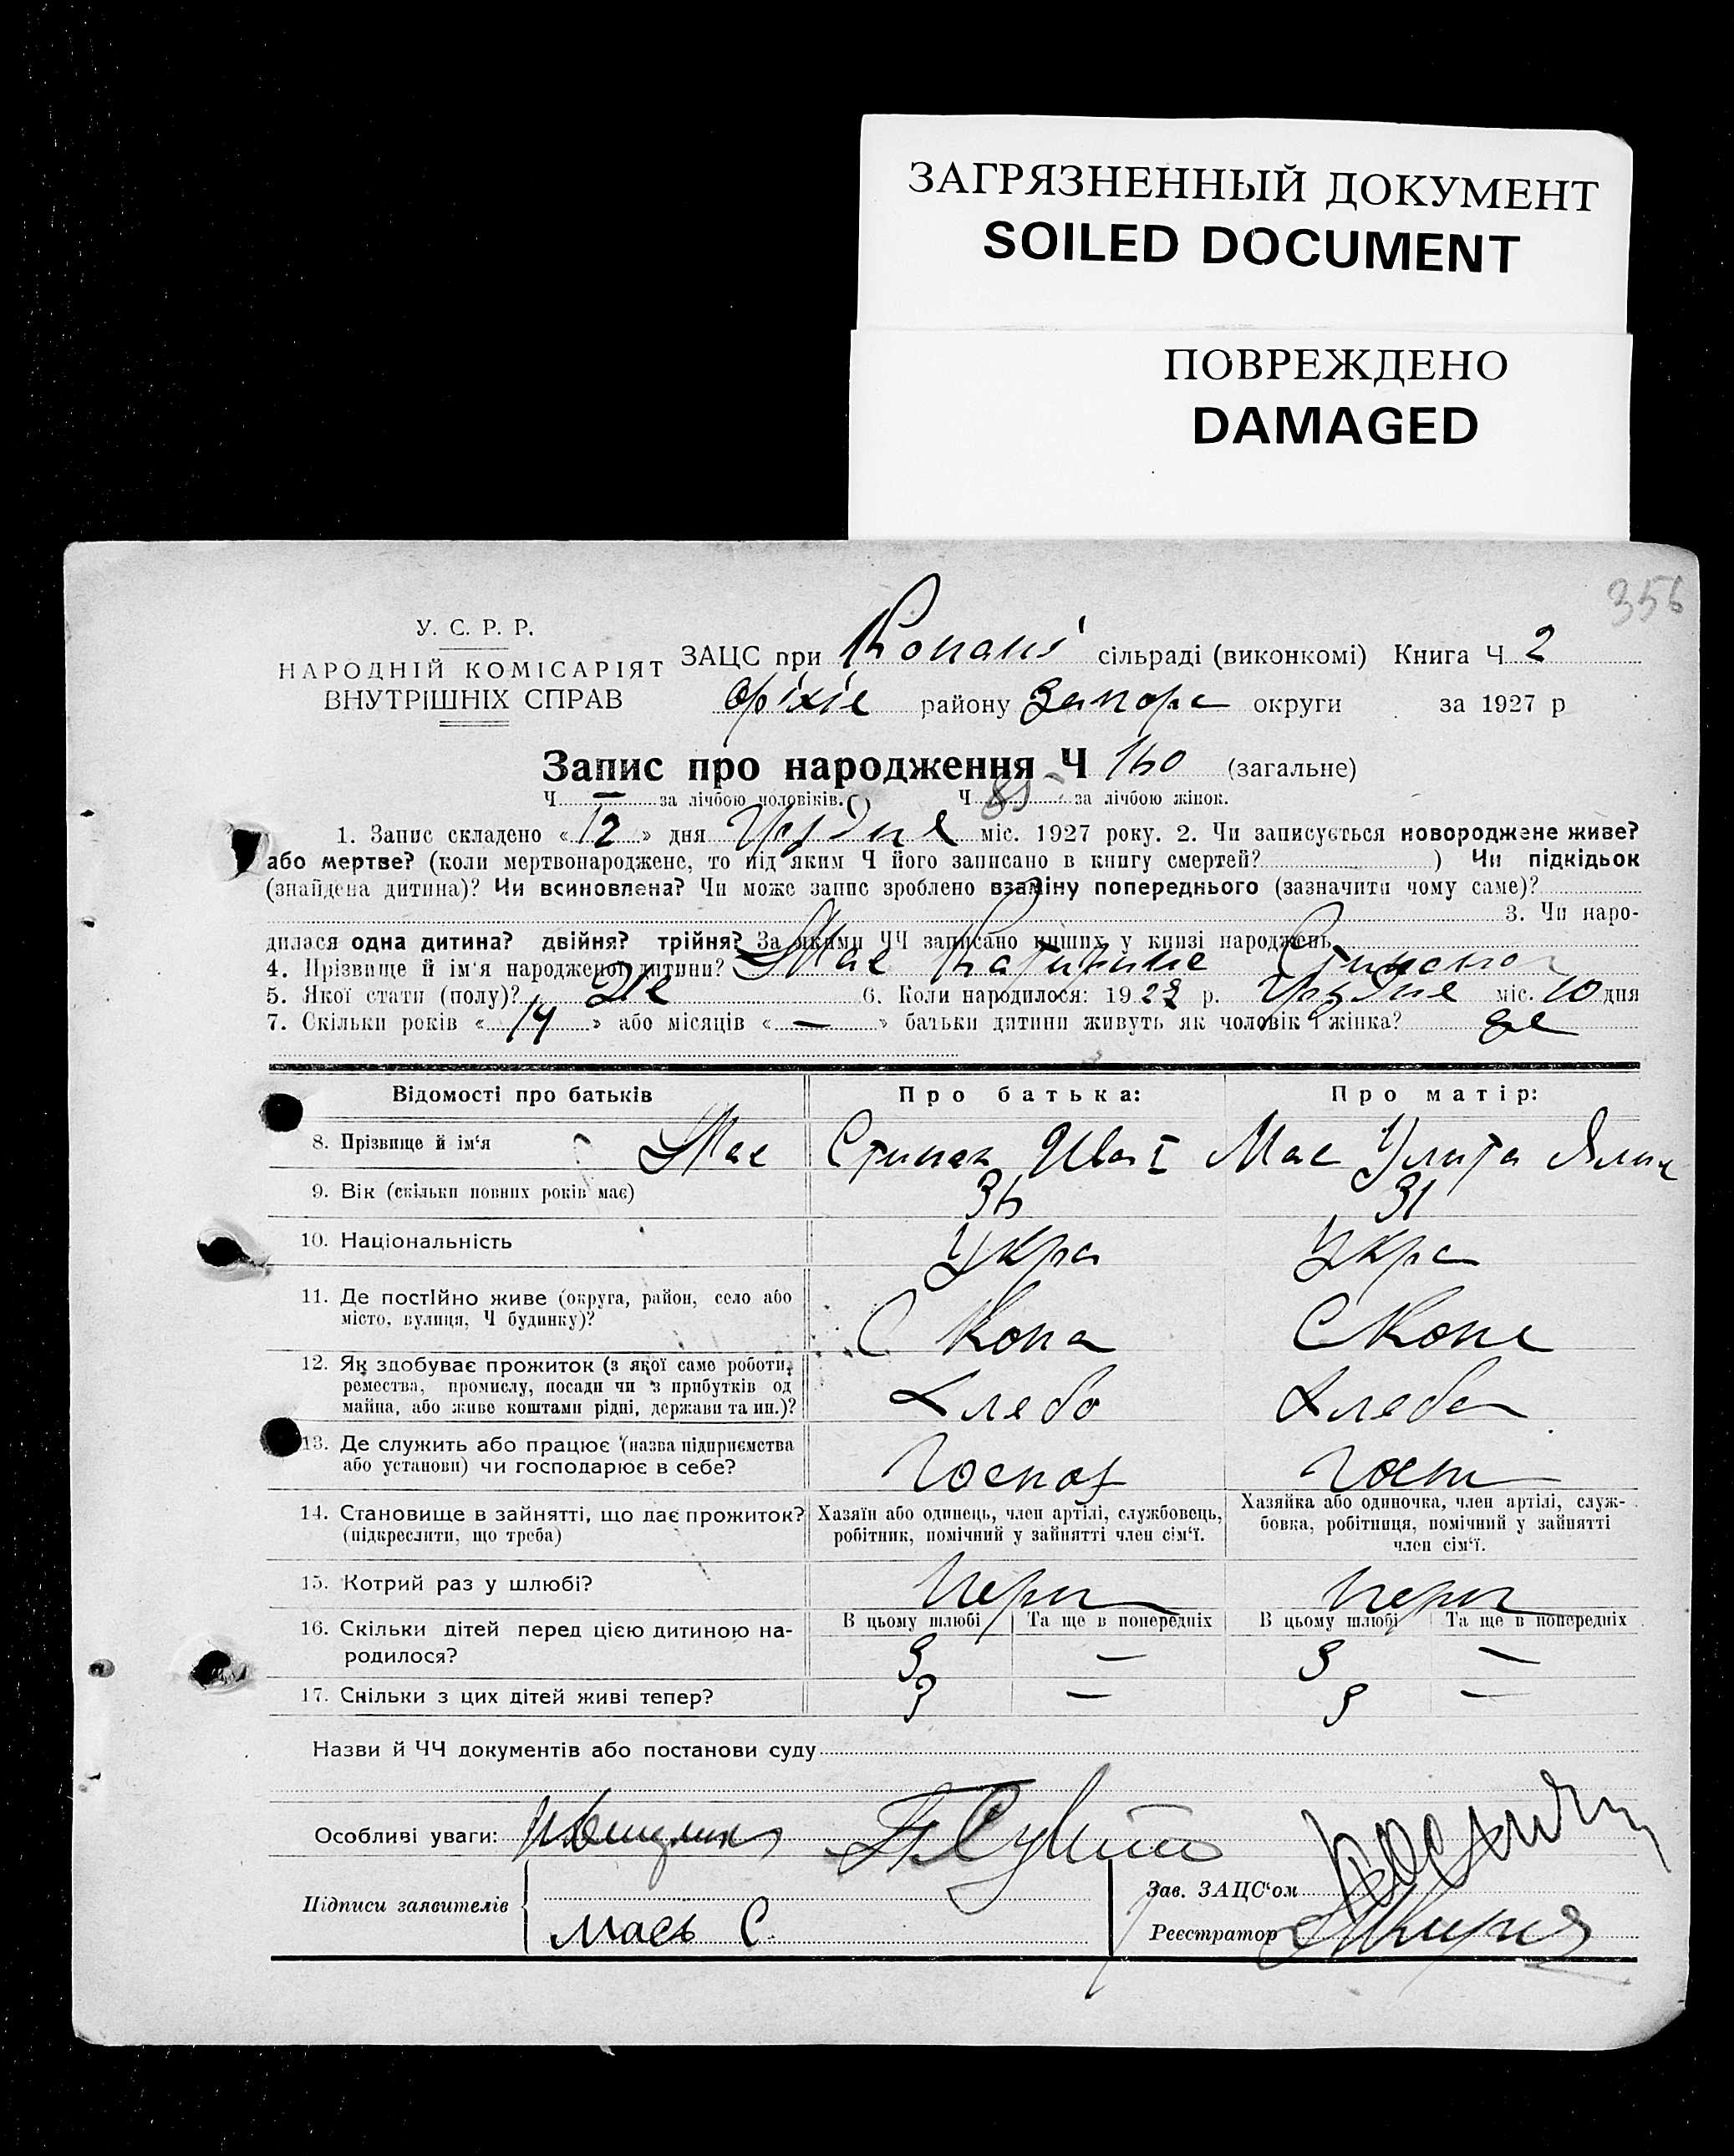 ЗАГРЯЗНЕННЫЙ ДОКУМЕНТ
SOILED DOCUMENT
ПОВРЕЖДЕНО
DAMAGED
356
У. С. Р. Р.
НАРОДНІЙ КОМІСАРІЯТ
ВНУТРІШНІХ СПРАВ
ЗАЦС при Копані сільраді (виконкомі) Книга Ч 2
Оріхів району Запорж округи за 1927 р
Запис про народження Ч 160 (загальне)
Ч — за лічбою чоловіків. Ч 85 за лічбою жінок.
1. Запис складено « 12 » дня Грудня міс. 1927 року. 2. Чи записується новороджене живе?
або мертве? (коли мертвонароджене, то під яким Ч його записано в книгу смертей? ) Чи підкідьок
(знайдена дитина)? Чи всиновлена? Чи може запис зроблено взаміну попереднього (зазначити чому саме)?
3. Чи наро-
дилася одна дитина? двійня? трійня? За якими ЧЧ записано инших у книзі народжень
4. Прізвище й ім'я народженої дитини? Мас Катирина
5. Якої стати (полу)? Же 6. Коли народилося: 19 27 р. Грудня міс. 10 дня
7. Скільки років « 14 » або місяців « — » батьки дитини живуть як чоловік і жінка?
Відомості про батьків Про батька: Про матір:
8. Прізвище й ім'я Мас Стипан Иван Мас Улита
9. Вік (скільки повних років має) 36 31
10. Національність Укра Укра
11. Де постійно живе (округа, район, село або
місто, вулиця, Ч будинку)? С Копа С Копа
12. Як здобуває прожиток (з якої само роботи,
ремества, промислу, посади чи з прибутків од
майна, або живе коштами рідні, держави та ин.)? Хлебо Хлебо
13. Де служить або працює (назва підприємства
або установи) чи господарює в себе? Господ Госп
14. Становище в зайнятті, що дає прожиток? (підкреслити, що треба)
Хазяїн або одинець, член артілі, службовець,
робітник, помічний у зайнятті член сім'ї.
Хазяйка або одиночка, член артілі, служ-
бовка, робітниця, помічний у зайнятті
член сім'ї.
15. Котрий раз у шлюбі? Перы Перы
16. Скільки дітей перед цією дитиною на-
родилося?
В цьому шлюбі Та ще в попередніх В цьому шлюбі Та ще в попередніх
3 — 3 —
17. Скільки з цих дітей живі тепер? 3 — 3 —
Назви й ЧЧ документів або постанови суду
Особливі уваги:
Підписи заявителів
Мась С.
Зав. ЗАЦС'ом
Реєстратор